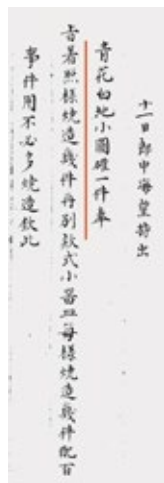 十一日郎中海望持出
青花白地小圓礶一件奉
旨著照樣燒造幾件再別款式小器皿每樣燒造幾件配百
事件用不必多燒造欽此